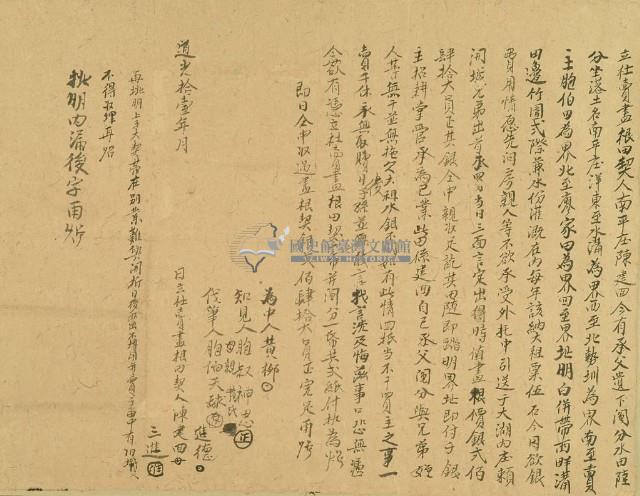 立杜賣盡根田契人南平庄陳建四今有承父遺下鬮分水田陸
分坐落土名南平庄洋東至水溝為界西至北勢圳為界南至賣
主胞伯田為界北至廖家田為界四至界址明白併帶兩畔溝
田邊竹圍式際兼水份灌溉在內每年該納大租粟伍石今因欲銀
費用情愿先問房親人等不欲承受外托中引送于大湖內庄賴
開城兄弟出首承買當日三面言定出得時值盡根價銀貳佰
肆拾大員正其銀仝中親收足訖其田隨即踏明界址即付于銀
主招耕掌管永為己業此田係建四自己承父鬮分與兄弟姪
人等無干並無拖欠大租水銀不如有此情四抵當不干賣主之事一
賣千休永無敢後日子孫並無找言洗及悔滋事口恐無憑
今欲有憑立杜賣盡根田契并鬮分一紙共貳紙付執為炤
即日仝中收過盡根契銀貳佰肆拾大員正完足再炤
為中人黃柳
知見人胞叔神恩
母親黃氏
代筆人胞伯天赦
道光拾壹年 月 日立杜賣盡根田契人陳建四
進德
三進
再批明上手大契帶在別業難以開折日後取出不得用并賣主中有旧契人
不得取理再炤
批明內添後字再炤
國史館臺灣文獻館
TAIWAN HISTORICA